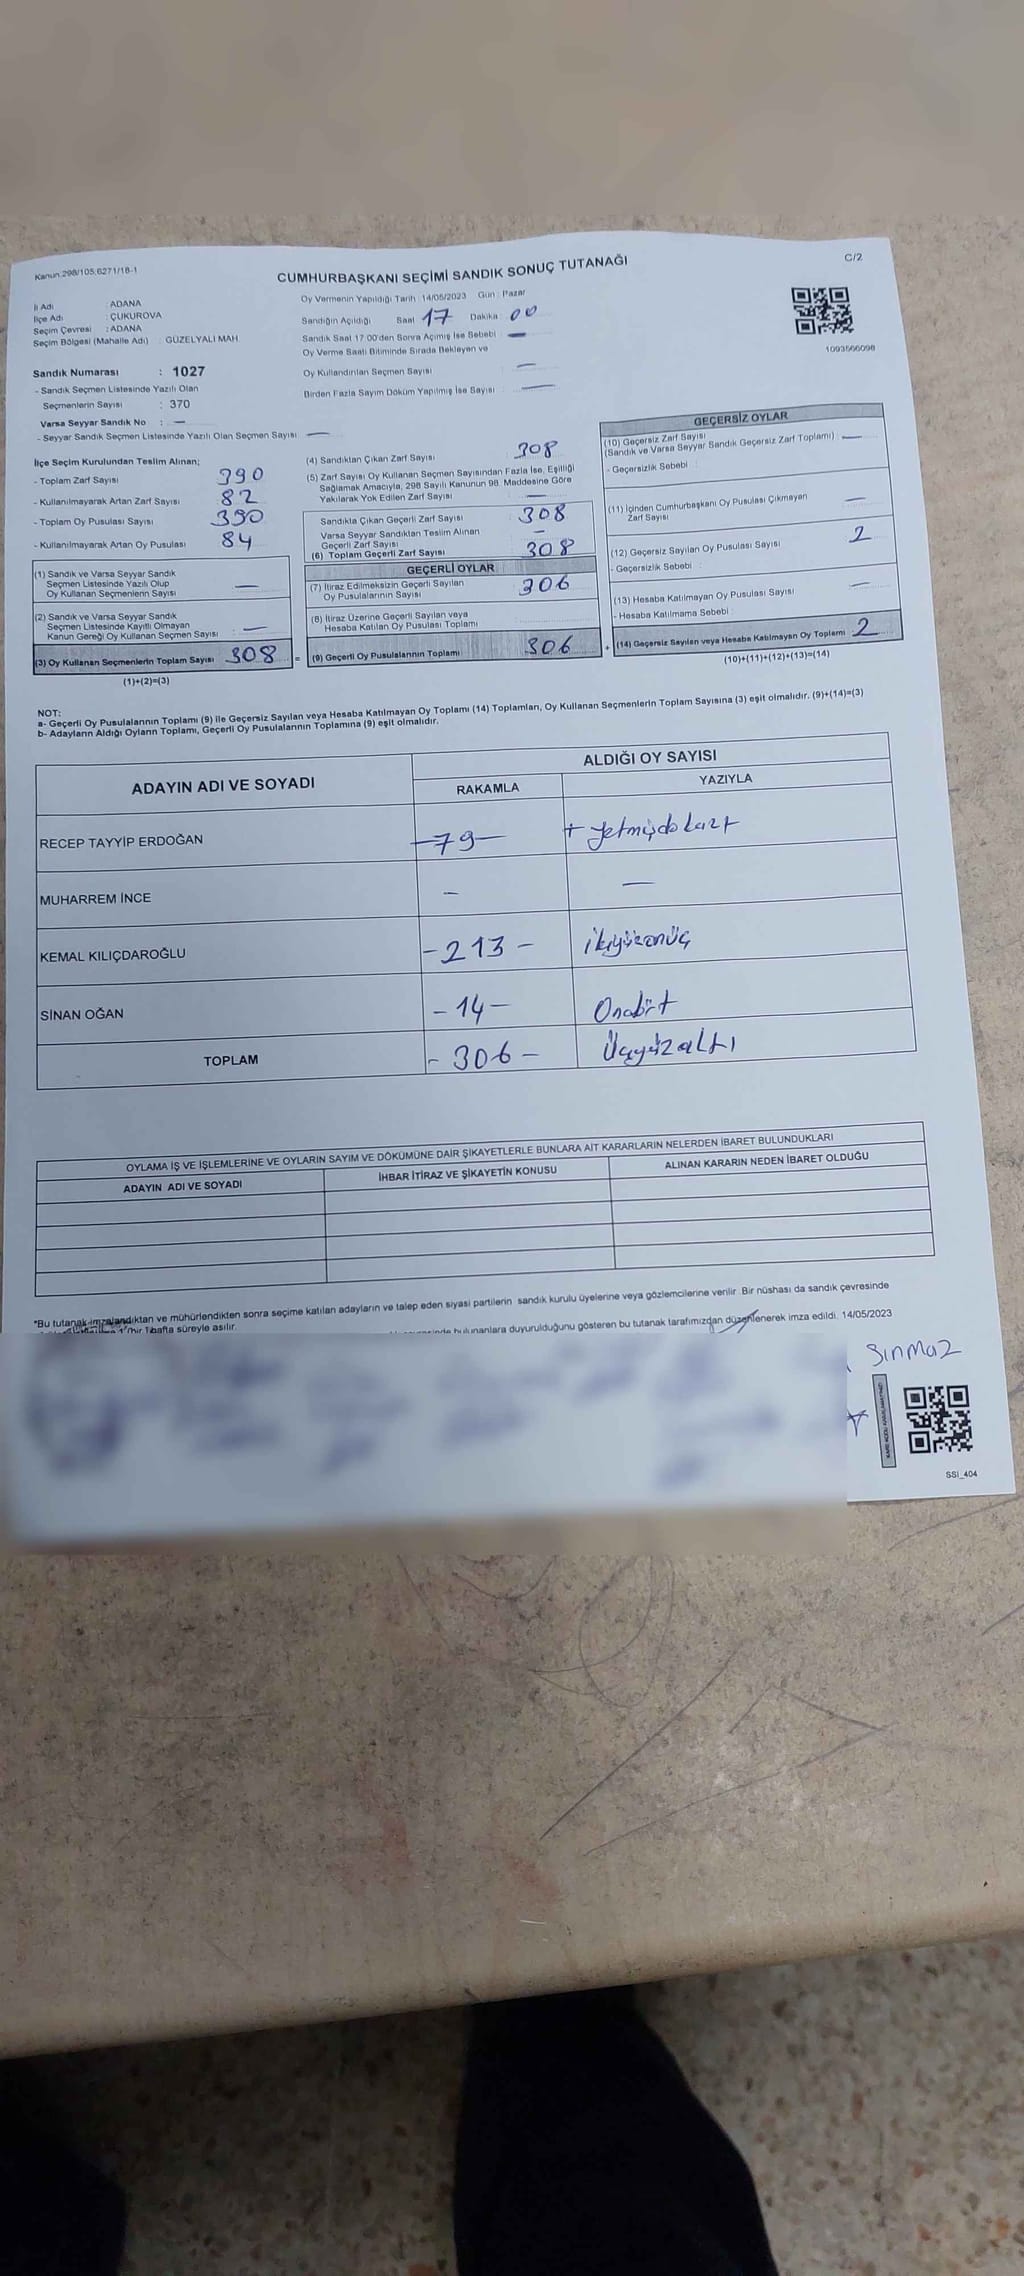 Kanun:298/105;6271/18-1
CUMHURBAŞKANI SEÇİMİ SANDIK SONUÇ TUTANAĞI
C/2
İl Adı : ADANA
İlçe Adı : ÇUKUROVA
Seçim Çevresi : ADANA
Seçim Bölgesi (Mahalle Adı) : GÜZELYALI MAH.
Oy Vermenin Yapıldığı Tarih : 14/05/2023 Gün : Pazar
Sandığın Açıldığı Saat 17 Dakika : 00
Sandık Saat 17:00'den Sonra Açılmış İse Sebebi —
Oy Verme Saati Bitiminde Sırada Bekleyen ve
Oy Kullandırılan Seçmen Sayısı —
Birden Fazla Sayım Döküm Yapılmış İse Sayısı —
1093566098
Sandık Numarası : 1027
- Sandık Seçmen Listesinde Yazılı Olan
Seçmenlerin Sayısı : 370
Varsa Seyyar Sandık No : —
- Seyyar Sandık Seçmen Listesinde Yazılı Olan Seçmen Sayısı —
İlçe Seçim Kurulundan Teslim Alınan;
- Toplam Zarf Sayısı 390
- Kullanılmayarak Artan Zarf Sayısı 82
- Toplam Oy Pusulası Sayısı 390
- Kullanılmayarak Artan Oy Pusulası 84
(1) Sandık ve Varsa Seyyar Sandık
Seçmen Listesinde Yazılı Olup
Oy Kullanan Seçmenlerin Sayısı —
(2) Sandık ve Varsa Seyyar Sandık
Seçmen Listesinde Kayıtlı Olmayan
Kanun Gereği Oy Kullanan Seçmen Sayısı : —
(3) Oy Kullanan Seçmenlerin Toplam Sayısı 308
(1)+(2)=(3)
(4) Sandıktan Çıkan Zarf Sayısı 308
(5) Zarf Sayısı Oy Kullanan Seçmen Sayısından Fazla İse, Eşitliği
Sağlamak Amacıyla, 298 Sayılı Kanunun 98. Maddesine Göre
Yakılarak Yok Edilen Zarf Sayısı —
Sandıkta Çıkan Geçerli Zarf Sayısı 308
Varsa Seyyar Sandıktan Teslim Alınan
Geçerli Zarf Sayısı —
(6) Toplam Geçerli Zarf Sayısı 308
GEÇERLİ OYLAR
(7) İtiraz Edilmeksizin Geçerli Sayılan
Oy Pusulalarının Sayısı 306
(8) İtiraz Üzerine Geçerli Sayılan veya
Hesaba Katılan Oy Pusulası Toplamı
= (9) Geçerli Oy Pusulalarının Toplamı 306
GEÇERSİZ OYLAR
(10) Geçersiz Zarf Sayısı
(Sandık ve Varsa Seyyar Sandık Geçersiz Zarf Toplamı) : —
- Geçersizlik Sebebi :
(11) İçinden Cumhurbaşkanı Oy Pusulası Çıkmayan
Zarf Sayısı —
(12) Geçersiz Sayılan Oy Pusulası Sayısı 2
- Geçersizlik Sebebi :
(13) Hesaba Katılmayan Oy Pusulası Sayısı —
- Hesaba Katılmama Sebebi :
+ (14) Geçersiz Sayılan veya Hesaba Katılmayan Oy Toplamı 2
(10)+(11)+(12)+(13)=(14)
NOT:
a- Geçerli Oy Pusulalarının Toplamı (9) ile Geçersiz Sayılan veya Hesaba Katılmayan Oy Toplamı (14) Toplamları, Oy Kullanan Seçmenlerin Toplam Sayısına (3) eşit olmalıdır. (9)+(14)=(3)
b- Adayların Aldığı Oyların Toplamı, Geçerli Oy Pusulalarının Toplamına (9) eşit olmalıdır.
ADAYIN ADI VE SOYADI
ALDIĞI OY SAYISI
RAKAMLA YAZIYLA
RECEP TAYYİP ERDOĞAN -79- yetmişdokuz
MUHARREM İNCE - —
KEMAL KILIÇDAROĞLU -213- ikiyüzonüç
SİNAN OĞAN -14- Ondört
TOPLAM -306- Üçyüzaltı
OYLAMA İŞ VE İŞLEMLERİNE VE OYLARIN SAYIM VE DÖKÜMÜNE DAİR ŞİKAYETLERLE BUNLARA AİT KARARLARIN NELERDEN İBARET BULUNDUKLARI
ADAYIN ADI VE SOYADI İHBAR İTİRAZ VE ŞİKAYETİN KONUSU ALINAN KARARIN NEDEN İBARET OLDUĞU
*Bu tutanak imzalandıktan ve mühürlendikten sonra seçime katılan adayların ve talep eden siyasi partilerin sandık kurulu üyelerine veya gözlemcilerine verilir. Bir nüshası da sandık çevresinde
bir hafta süreyle asılır.
bulunanlara duyurulduğunu gösteren bu tutanak tarafımızdan düzenlenerek imza edildi. 14/05/2023
Sınmaz
SSI_404